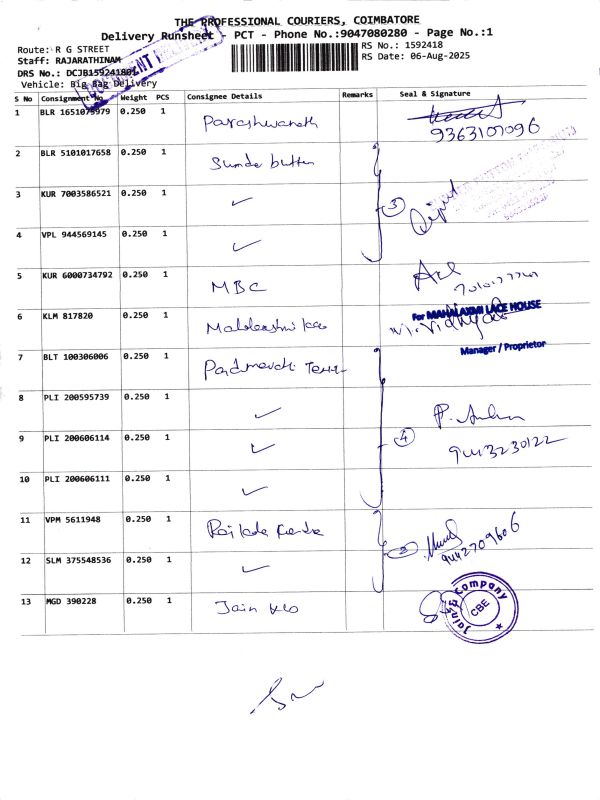 THE PROFESSIONAL COURIERS, COIMBATORE
Delivery Runsheet - PCT - Phone No.:9047080280 - Page No.:1
Route: R G STREET
RS No.: 1592418
Staff: RAJARATHINAM
RS Date: 06-Aug-2025
DRS No.: DCJB159241801
Vehicle: Big Bag Delivery
S No Consignment No Weight PCS Consignee Details Remarks Seal & Signature
1 BLR 1651075979 0.250 1 Parashwanath
9363107096
2 BLR 5101017658 0.250 1 Sunda button
3 KUR 7003586521 0.250 1 ✓ 3
4 VPL 944569145 0.250 1 ✓
5 KUR 6000734792 0.250 1 MBC
6 KLM 817820 0.250 1 For MAHALAXMI LACE HOUSE
Manager / Proprietor
7 BLT 100306006 0.250 1
8 PLI 200595739 0.250 1 ✓
9 PLI 200606114 0.250 1 ✓ 4
9443230122
10 PLI 200606111 0.250 1 ✓
11 VPM 5611948 0.250 1
9442709606
12 SLM 375548536 0.250 1 ✓
13 MGD 390228 0.250 1 Jain
Company
CBE